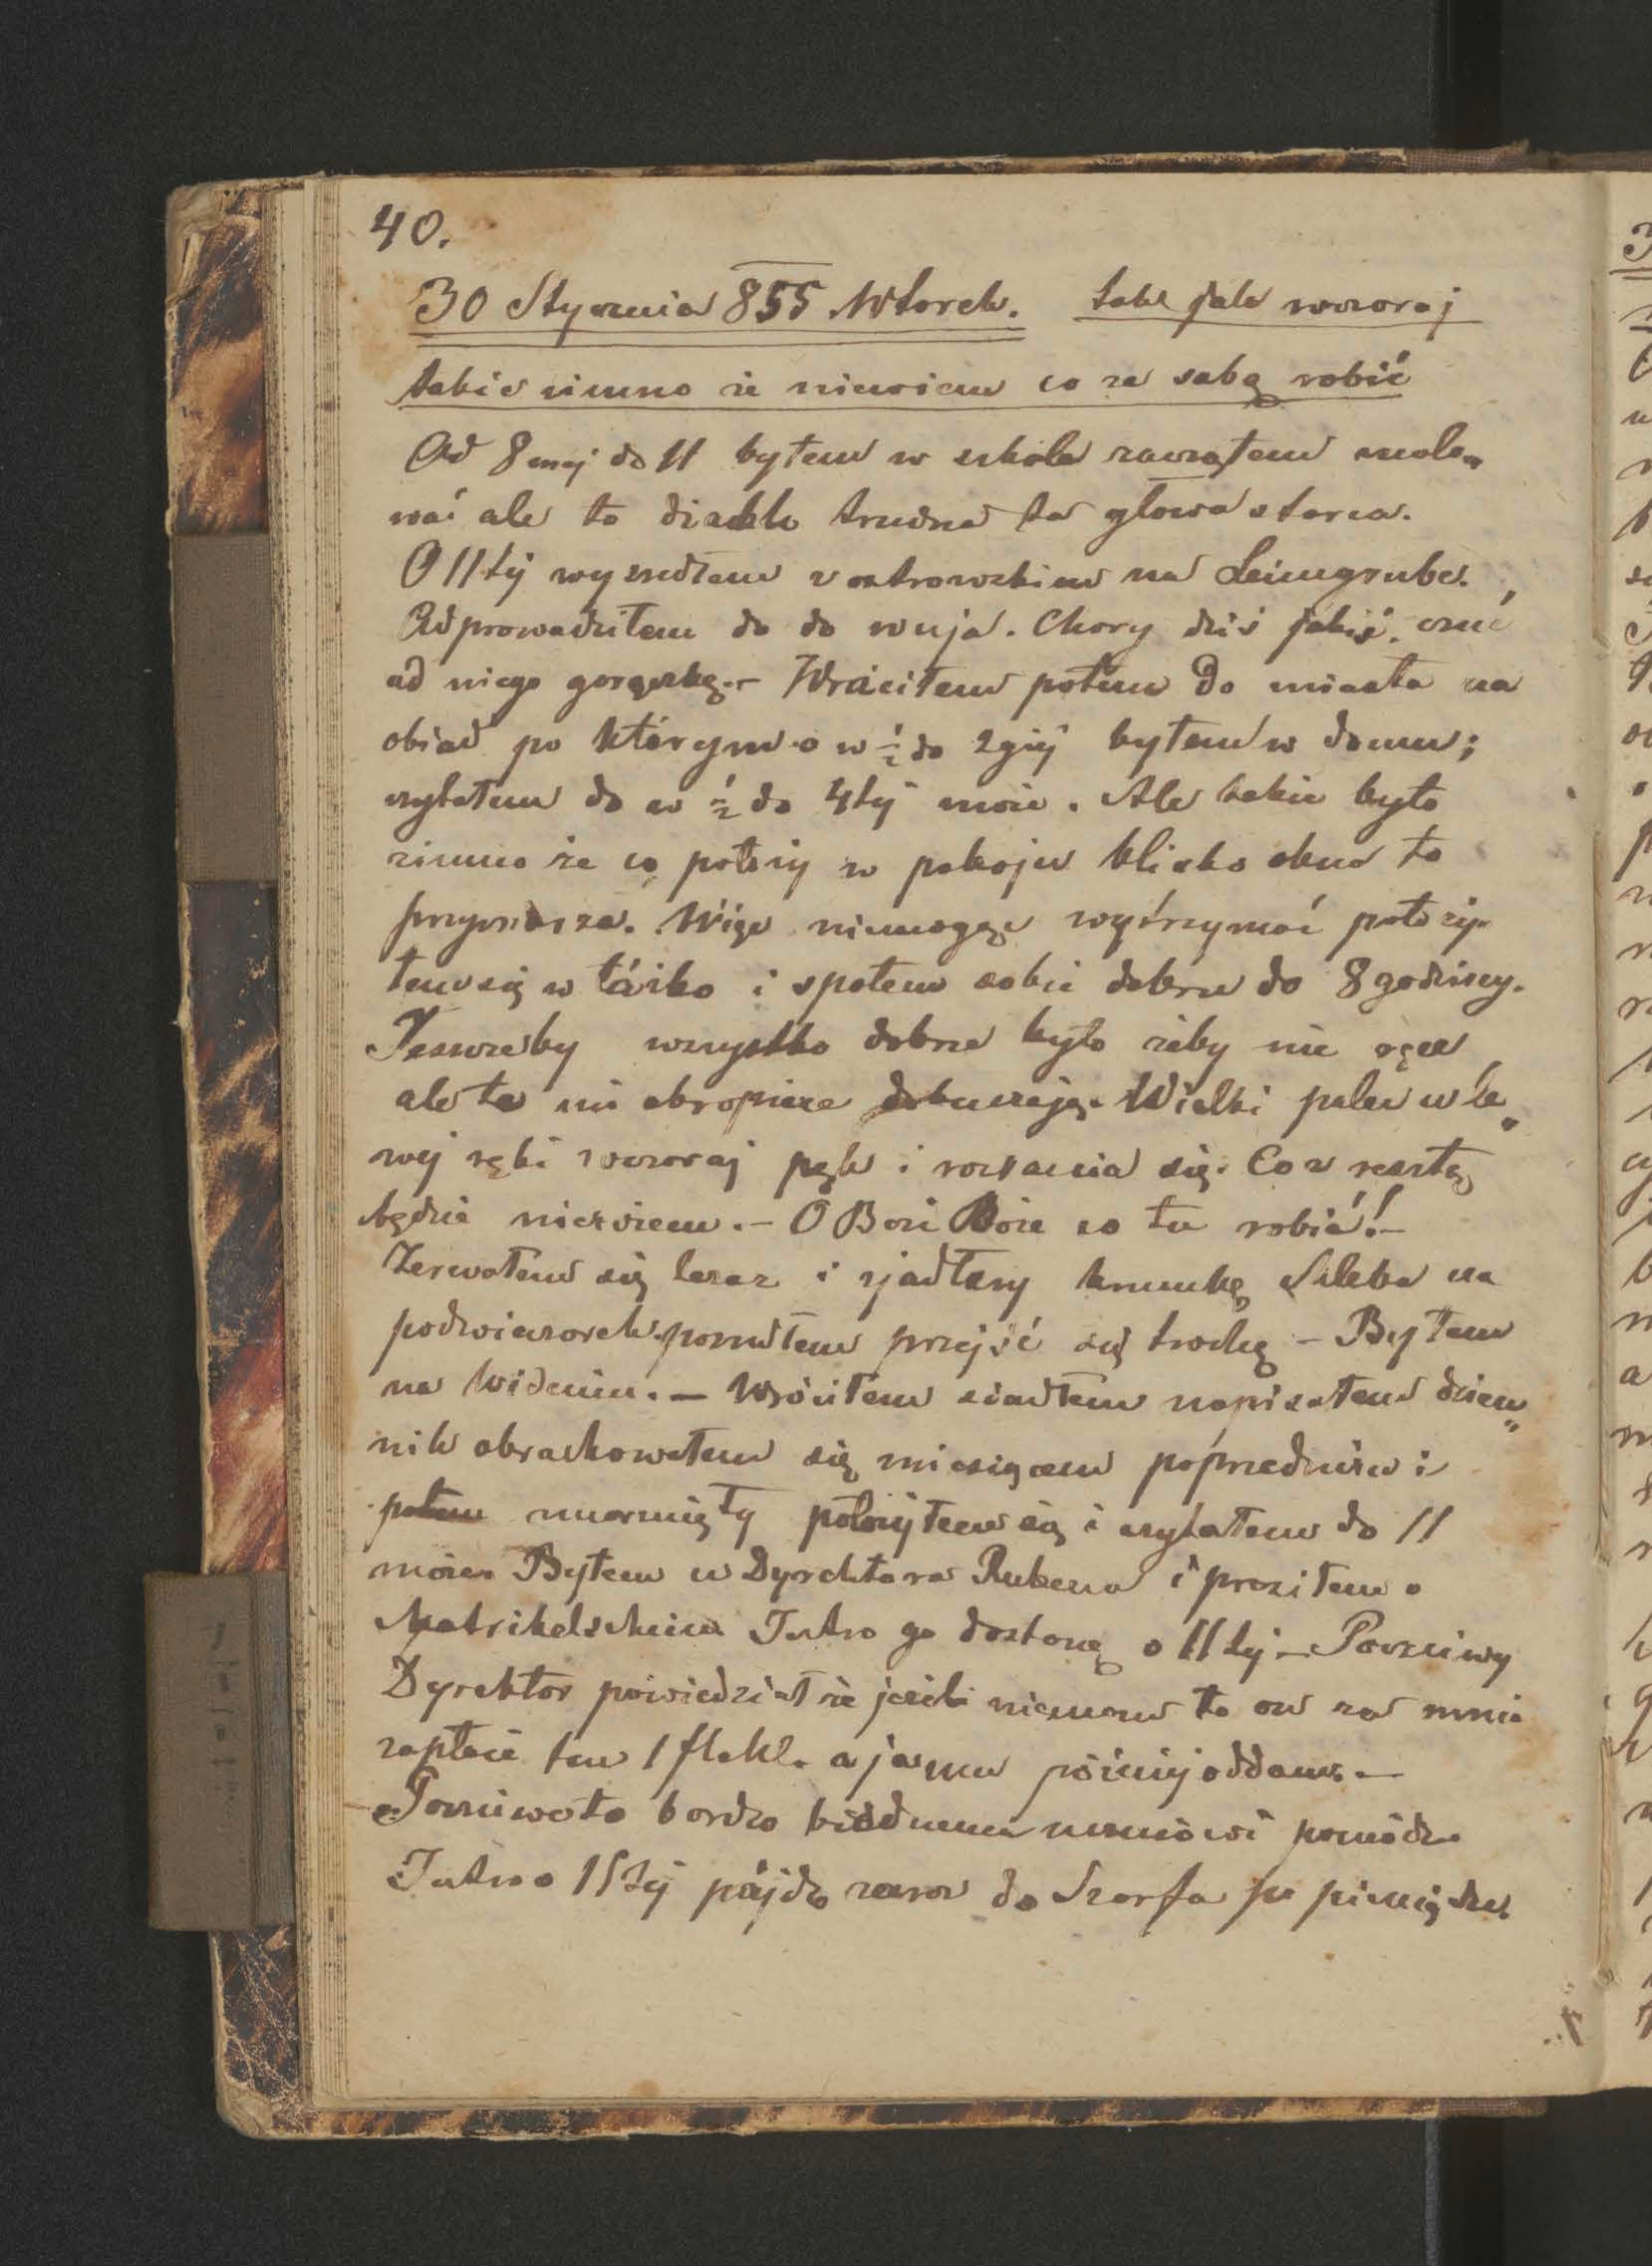 40.
30 Stycznia 855 Wtorek. tak jak wczoraj
takie zimno że niewiem co ze sobą robić
Od 8mej do 11 byłem w szkole zacząłem malo„
wać ale to diachle trudna ta głowa starca.
O 11téj wyszedłem z ostrowskim na Leimgrube.
Odprowadziłem do do wuja. Chory dziś jakiś. czuć
od niego gorączkę. – Wróciłem potem do miasta na
obiad po którym o w ½ do 2giéj byłem w domu;
czytałem do w ½ do 4téj może. Ale takie było
zimno że co położy w pokoju blisko okna to
przymarza. Więc niemogąc wytrzymać położy„
łem się w łóżko i spałem sobie dobrze do 8 godziny.
Jeszczeby wszystko dobrze było żeby nie ręce
ale te mi okropnie dokuczają. Wielki palec u le„
wej ręki wczoraj pękł i rozrania się. Co z resztą
będzie niewiem. – O Boże Boże co tu robić! –
Zerwałem się teraz i zjadłszy kromkę chleba na
podwieczorek poszedłem przejść się trochę – Byłem
na Wideniu. – Wróciłem siadłem napisałem dzien„
nik obrachowałem się miesiącem poprzednim i
potem zmarznięty położyłem się i czytałem do 11
może. Byłem u Dyrektora Rubena i prosiłem o
Matrikelschein Jutro go dostanę o 11téj – Poczciwy
Dyrektor powiedział że jeżeli niemam to on za mnie
zapłaci ten 1 fl a ja mu później oddam. –
Poczciwe to bardzo biednemu uczniowi pomódz.
Jutro o 11téj pójdę zaraz do Szarfa po pieniądze.